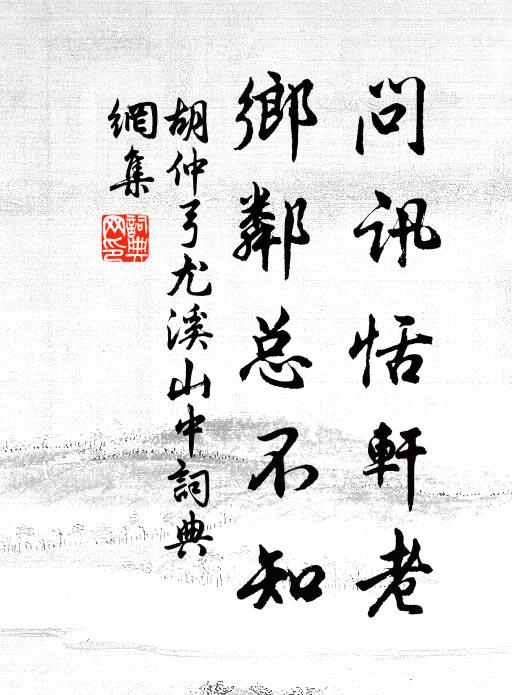 問訊恬軒老
鄉鄰总不知
胡仲弓尤溪山中詞典
網集
詞典
网印